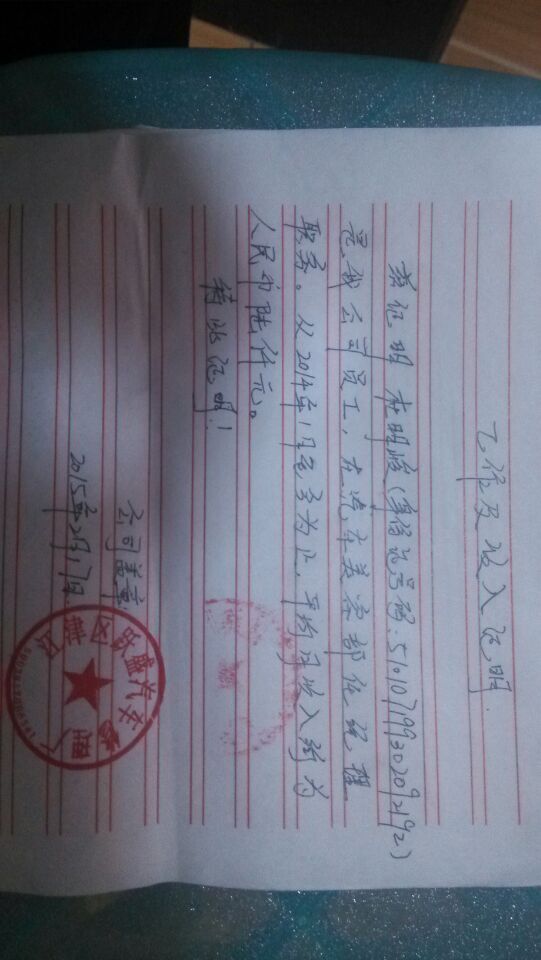 工作及收入证明
兹证明杜明 (身份证号码:
是我公司员工,在汽车美容部任经理
职务。从2014年1月至今为止,平均月收入约为
人民币陆仟元。
特此证明!
公司盖章
2015年2月17日
汽车修理厂